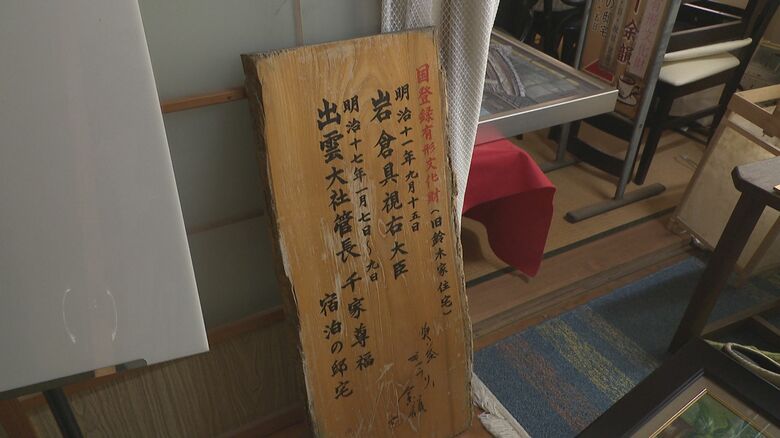 国登録有形文化財(旧鈴木家住宅)
明治十一年九月十五日
岩倉具視右大臣
明治十七年一月七日~九日
出雲大社管長 千家尊福
宿泊の邸宅
余韻